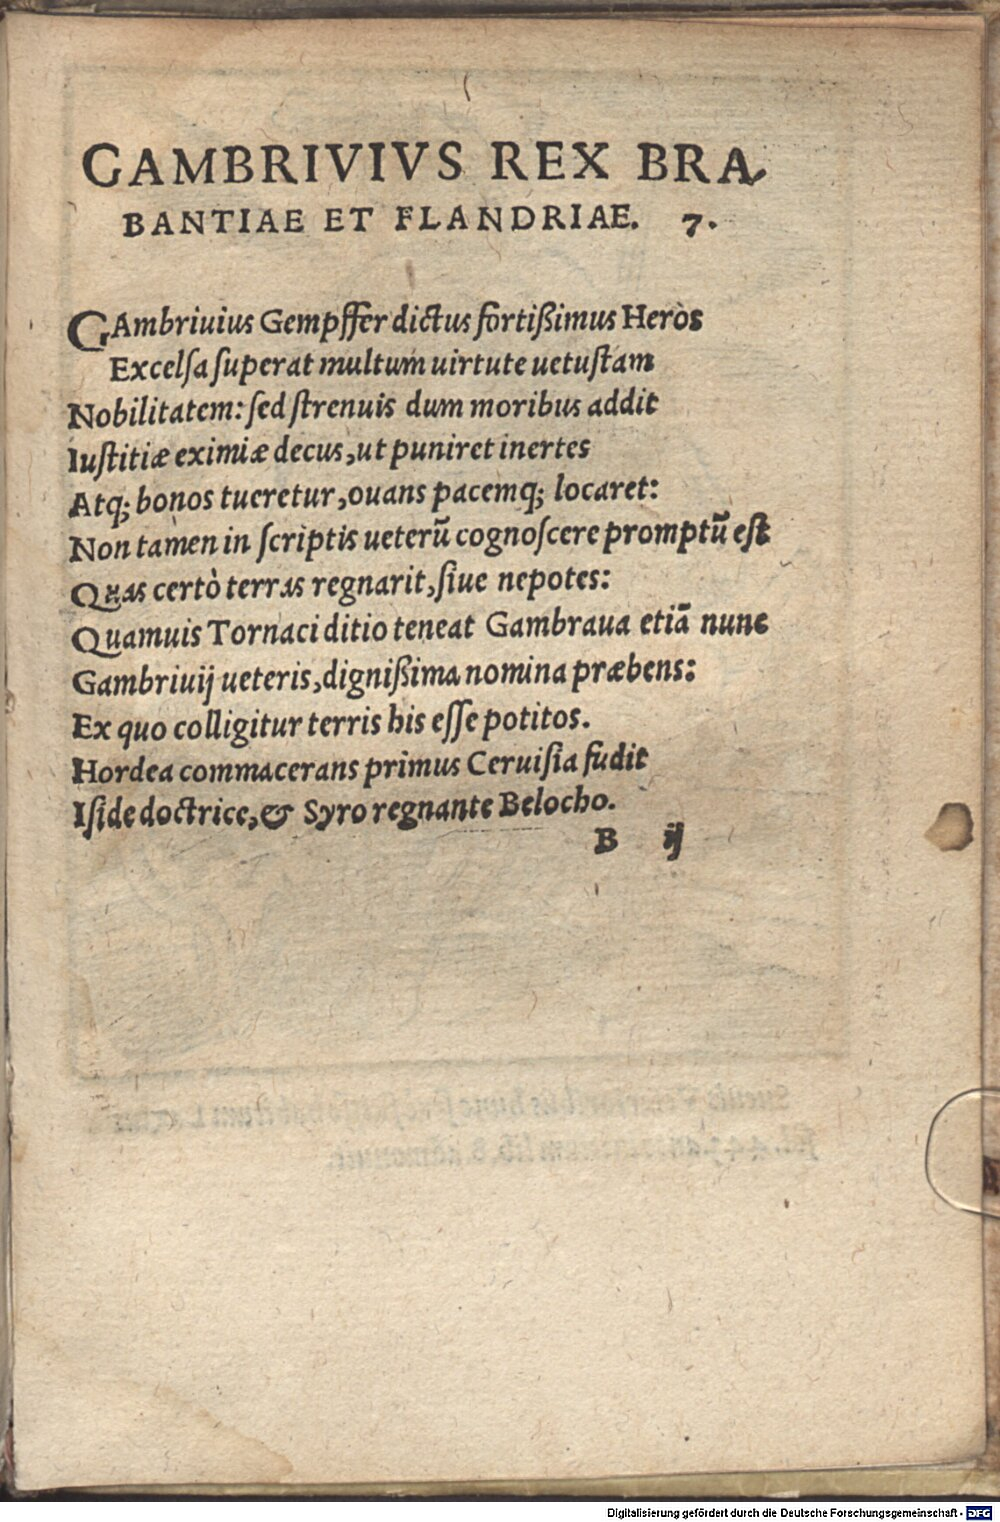 GAMBRIVIVS REX BRA
BANTIAE ET FLANDRIAE. 7.
GAmbriuius Gempffer dictus fortißimus Heròs
Excelſa ſuperat multum uirtute uetuſtam
Nobilitatem: ſed ſtrenuis dum moribus addit
Iuſtitiæ eximiæ decus, ut puniret inertes
Atq; bonos tueretur, ouans pacemq; locaret:
Non tamen in ſcriptis ueterū cognoſcere promptū eſt
Quas certò terras regnarit, ſiue nepotes:
Quamuis Tornaci ditio teneat Gambraua etiā nunc
Gambriuij ueteris, digniſſima nomina præbens:
Ex quo colligitur terris his eſſe potitos.
Hordea commacerans primus Ceruiſia fudit
Iſide doctrice, & Syro regnante Belocho.
B ij
Digitalisierung gefördert durch die Deutsche Forschungsgemeinschaft - DFG